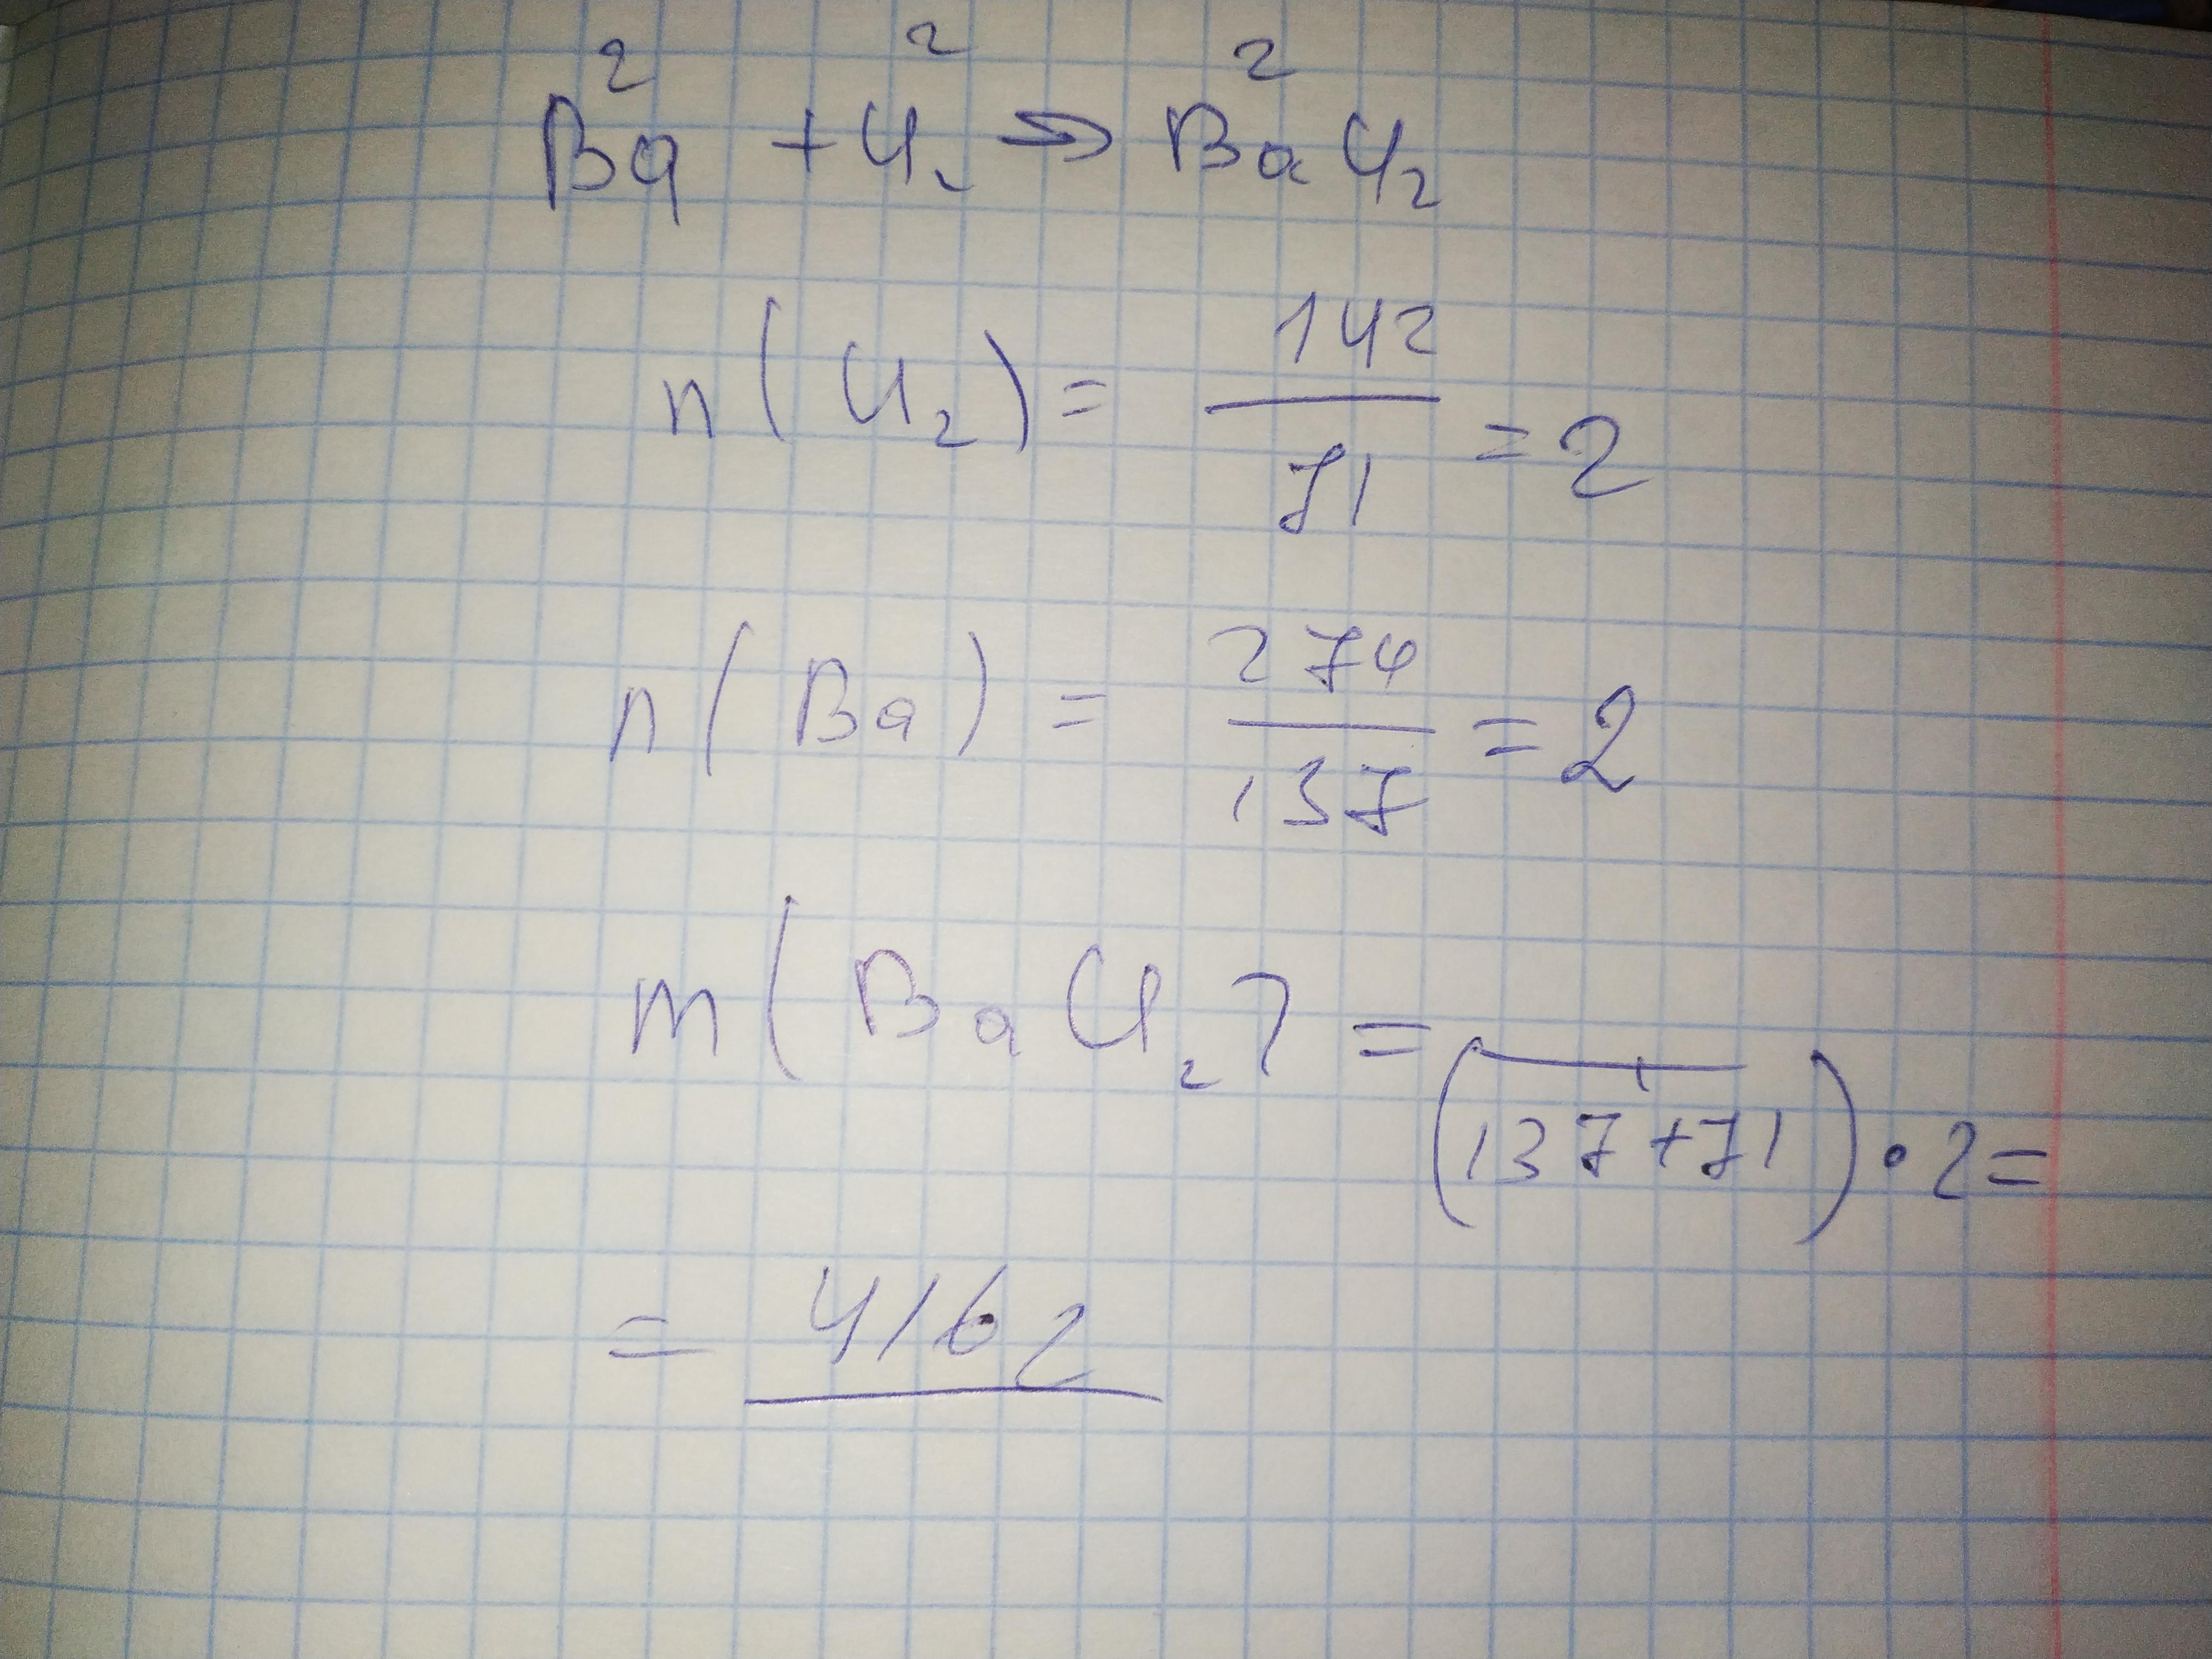 2 2 2
Ba + Cl₂ → BaCl₂
n(Cl₂) = 142/71 = 2
n(Ba) = 274/137 = 2
m(BaCl₂) = (137+71)·2=
= 416г